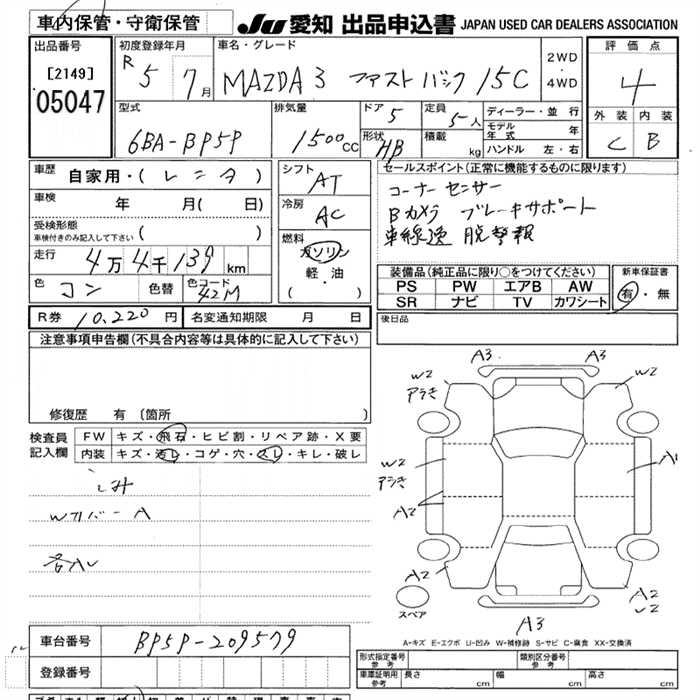 車内保管・守衛保管
JU 愛知 出品申込書 JAPAN USED CAR DEALERS ASSOCIATION
出品番号
[2149]
05047
初度登録年月
R 5 7月
車名・グレード
MAZDA3 ファストバック 15C
2WD
・
4WD
評価点
4
外装 内装
C B
型式
6BA-BP5P
排気量
1500cc
ドア 5
形状 HB
定員 5人
積載 kg
ディーラー・並行
モデル年式 年
ハンドル 左・右
車歴 自家用・(レンタ)
車検 年 月( 日)
受検形態
車検付きのみ記入して下さい ( )
走行 4万4千139km
色 コン 色替 色コード 42M
シフト
AT
冷房
AC
燃料
ガソリン
軽・油
( ・ )
セールスポイント(正常に機能するものに限ります)
コーナーセンサー
Bカメラ ブレーキサポート
車線逸脱警報
装備品(純正品に限り○をつけてください)
PS PW エアB AW
SR ナビ TV カワシート
新車保証書
有・無
R券 10,220円 名変通知期限 月 日
後日品
注意事項申告欄(不具合内容等は具体的に記入して下さい)
修復歴 有(箇所 )
検査員
記入欄
FW キズ・飛石・ヒビ割・リペア跡・X要
内装 キズ・汚レ・コゲ・穴・スレ・キレ・破レ
シミ
Wカバー A
A3 A3
W2 W2
アラキ
W2 A1
アラキ
A2
A2 A2
W2
A3
スペア
A-キズ E-エクボ U-凹み W-補修跡 S-サビ C-腐食 XX-交換済
車台番号 BP5P-209579
登録番号
形式指定番号
参考
類別区分番号
参考
車庫証明用
参考
長さ cm 幅 cm 高さ cm